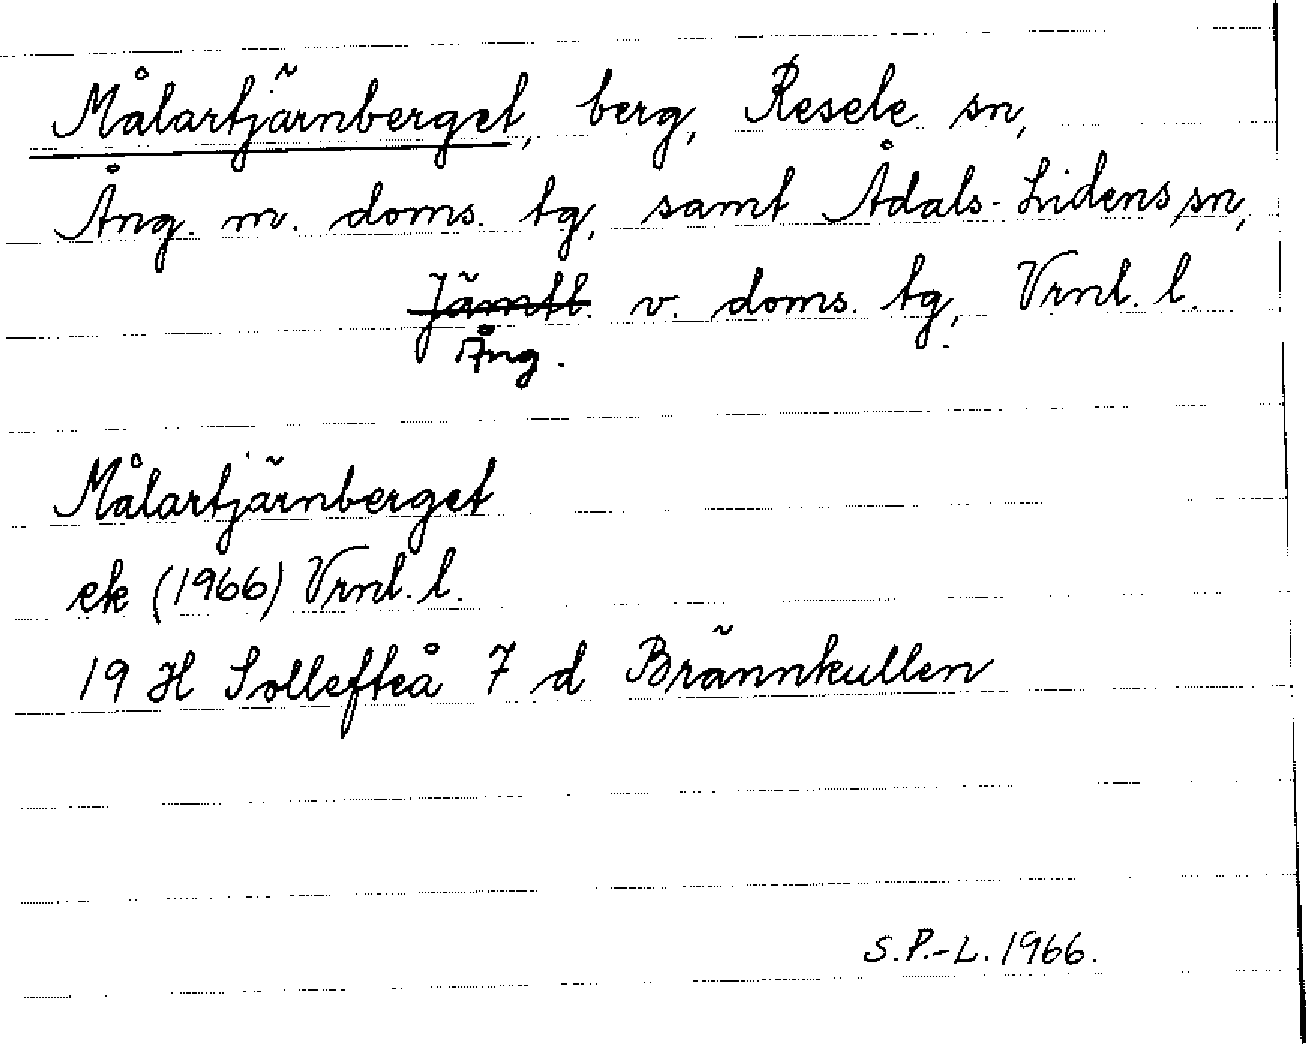 Målartjärnberget, berg, Resele sn,
Ång. m. doms. tg, samt Ådals-Lidens sn,
Jämtl. v. doms. tg, Vrnl. l.
Ång.
Målartjärnberget
ek (1966) Vrnl. l.
19 H Sollefteå 7 d Brännkullen
S.P.-L. 1966.